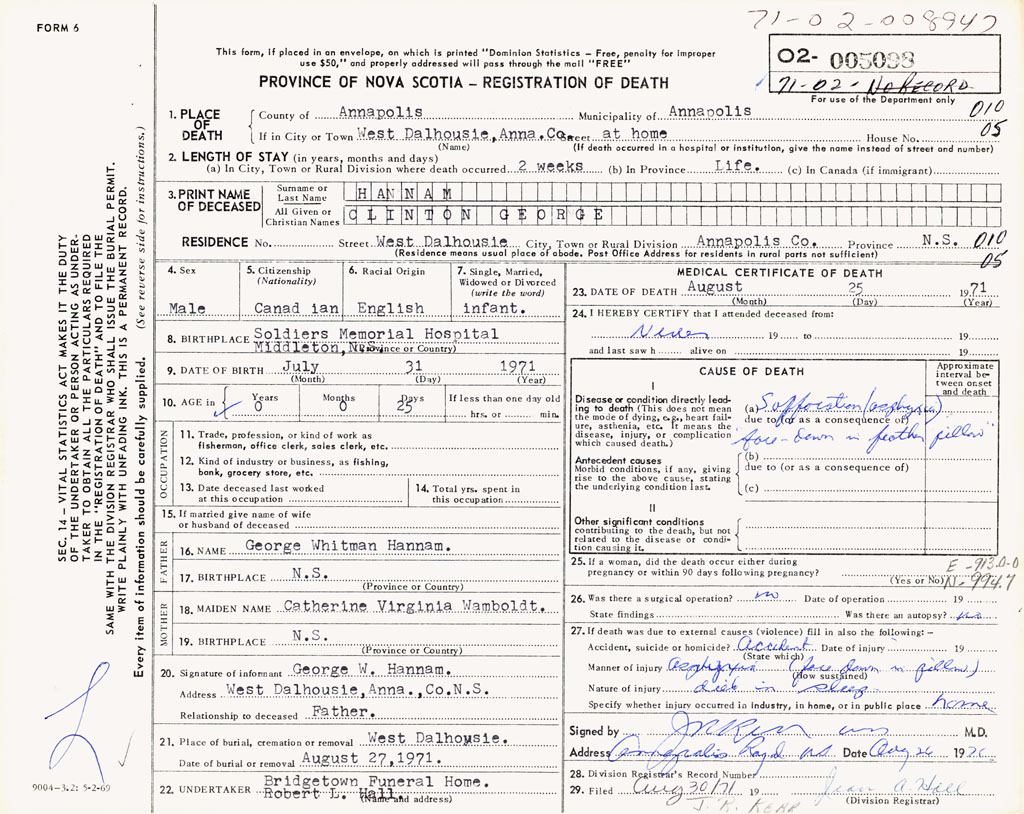 FORM 6
71-02-008947
This form, if placed in an envelope, on which is printed "Dominion Statistics – Free, penalty for improper
use $50," and properly addressed will pass through the mail "FREE"
O2- 005098
71-02- No RECORD
For use of the Department only
PROVINCE OF NOVA SCOTIA – REGISTRATION OF DEATH
1. PLACE OF DEATH
County of Annapolis Municipality of Annapolis 010
If in City or Town West Dalhousie, Anna.Co. Street at home House No. 05
(Name) (If death occurred in a hospital or institution, give the name instead of street and number)
2. LENGTH OF STAY (in years, months and days)
(a) In City, Town or Rural Division where death occurred 2 weeks (b) In Province Life. (c) In Canada (if immigrant)
3. PRINT NAME OF DECEASED
Surname or Last Name HANNAM
All Given or Christian Names CLINTON GEORGE
RESIDENCE No. Street West Dalhousie City, Town or Rural Division Annapolis Co. Province N.S. 010
(Residence means usual place of abode. Post Office Address for residents in rural parts not sufficient) 05
4. Sex
Male
5. Citizenship
(Nationality)
Canad ian
6. Racial Origin
English
7. Single, Married,
Widowed or Divorced
(write the word)
infant.
8. BIRTHPLACE Soldiers Memorial Hospital
Middleton, N.S. (Province or Country)
9. DATE OF BIRTH July 31 1971
(Month) (Day) (Year)
10. AGE in
Years Months Days If less than one day old
0 0 25 hrs. or min.
OCCUPATION
11. Trade, profession, or kind of work as
fisherman, office clerk, sales clerk, etc.
12. Kind of industry or business, as fishing,
bank, grocery store, etc.
13. Date deceased last worked
at this occupation
14. Total yrs. spent in
this occupation
15. If married give name of wife
or husband of deceased
FATHER
16. NAME George Whitman Hannam.
17. BIRTHPLACE N.S.
(Province or Country)
MOTHER
18. MAIDEN NAME Catherine Virginia Wamboldt.
19. BIRTHPLACE N.S.
(Province or Country)
20. Signature of informant George W. Hannam.
Address West Dalhousie, Anna., Co.N.S.
Relationship to deceased Father.
21. Place of burial, cremation or removal West Dalhousie.
Date of burial or removal August 27, 1971.
22. UNDERTAKER Bridgetown Funeral Home.
Robert L. Hall. (Name and address)
MEDICAL CERTIFICATE OF DEATH
23. DATE OF DEATH August 25 1971
(Month) (Day) (Year)
24. I HEREBY CERTIFY that I attended deceased from:
Never 19 to 19
and last saw h alive on 19
CAUSE OF DEATH
Approximate
interval between
onset
and death
I
Disease or condition directly leading
to death (This does not mean
the mode of dying, e.g., heart failure,
asthenia, etc. It means the
disease, injury, or complication
which caused death.)
(a) Suffocation (asphyxia)
due to (or as a consequence of)
"face-down in feather pillow"
Antecedent causes
Morbid conditions, if any, giving
rise to the above cause, stating
the underlying condition last.
(b)
due to (or as a consequence of)
(c)
II
Other significant conditions
contributing to the death, but not
related to the disease or condition
causing it.
25. If a woman, did the death occur either during
pregnancy or within 90 days following pregnancy? (Yes or No)
E-913.0-0
N-994.7
26. Was there a surgical operation? no Date of operation 19
State findings Was there an autopsy? no
27. If death was due to external causes (violence) fill in also the following: –
Accident, suicide or homicide? Accident Date of injury 19
(State which)
Manner of injury Asphyxia (face down in pillow)
(How sustained)
Nature of injury died in sleep
Specify whether injury occurred in industry, in home, or in public place home
Signed by M.D.
Address Annapolis Royal N.S. Date Aug 26 19
28. Division Registrar's Record Number
29. Filed Aug 30/71 19 Jean A. Hall
(Division Registrar)
J. R. KERR
SEC. 14 – VITAL STATISTICS ACT MAKES IT THE DUTY
OF THE UNDERTAKER OR PERSON ACTING AS UNDERTAKER
TO OBTAIN ALL THE PARTICULARS REQUIRED
IN THE "REGISTRATION OF DEATH" AND TO FILE THE
SAME WITH THE DIVISION REGISTRAR WHO SHALL ISSUE THE BURIAL PERMIT.
WRITE PLAINLY WITH UNFADING INK. THIS IS A PERMANENT RECORD.
Every item of information should be carefully supplied. (See reverse side for instructions.)
9004-3.2: 5-2-69